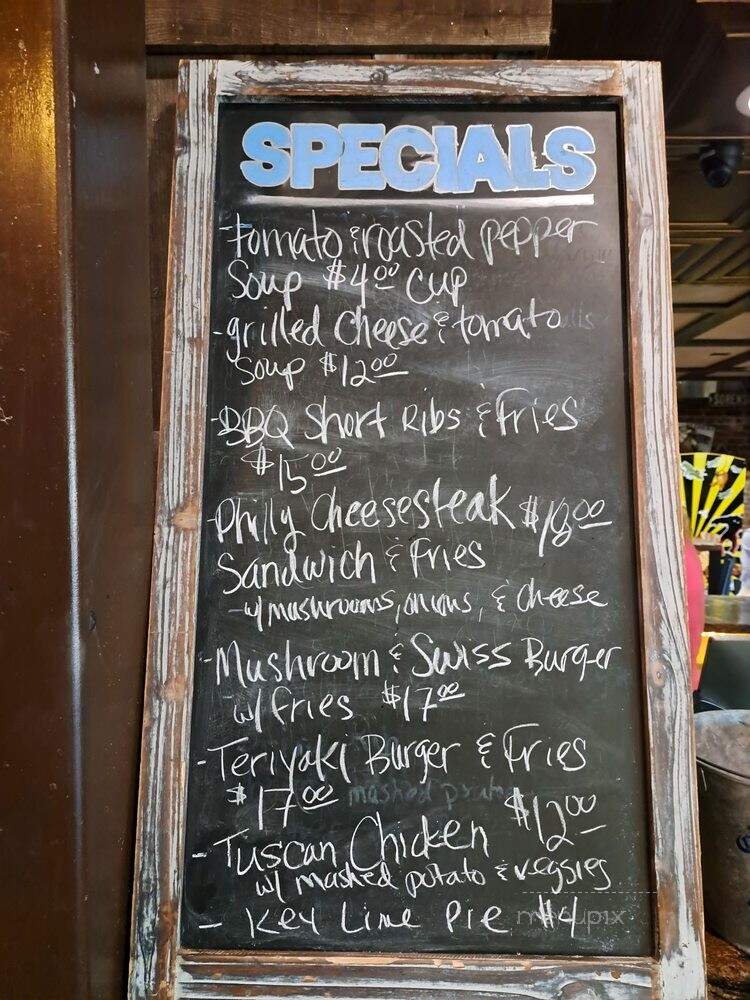 SPECIALS
- tomato & roasted pepper
Soup $4.00 cup
- grilled cheese & tomato
Soup $12.00
- BBQ Short Ribs & Fries
$15.00
- Philly Cheesesteak
Sandwich & Fries
- w/ mushrooms, onions, & cheese
- Mushroom & Swiss Burger
w/ fries $17.00
- Teriyaki Burger & Fries
$17.00 mashed
- Tuscan Chicken $12.00
w/ mashed potato & veggies
- Key Lime Pie $4
menupix